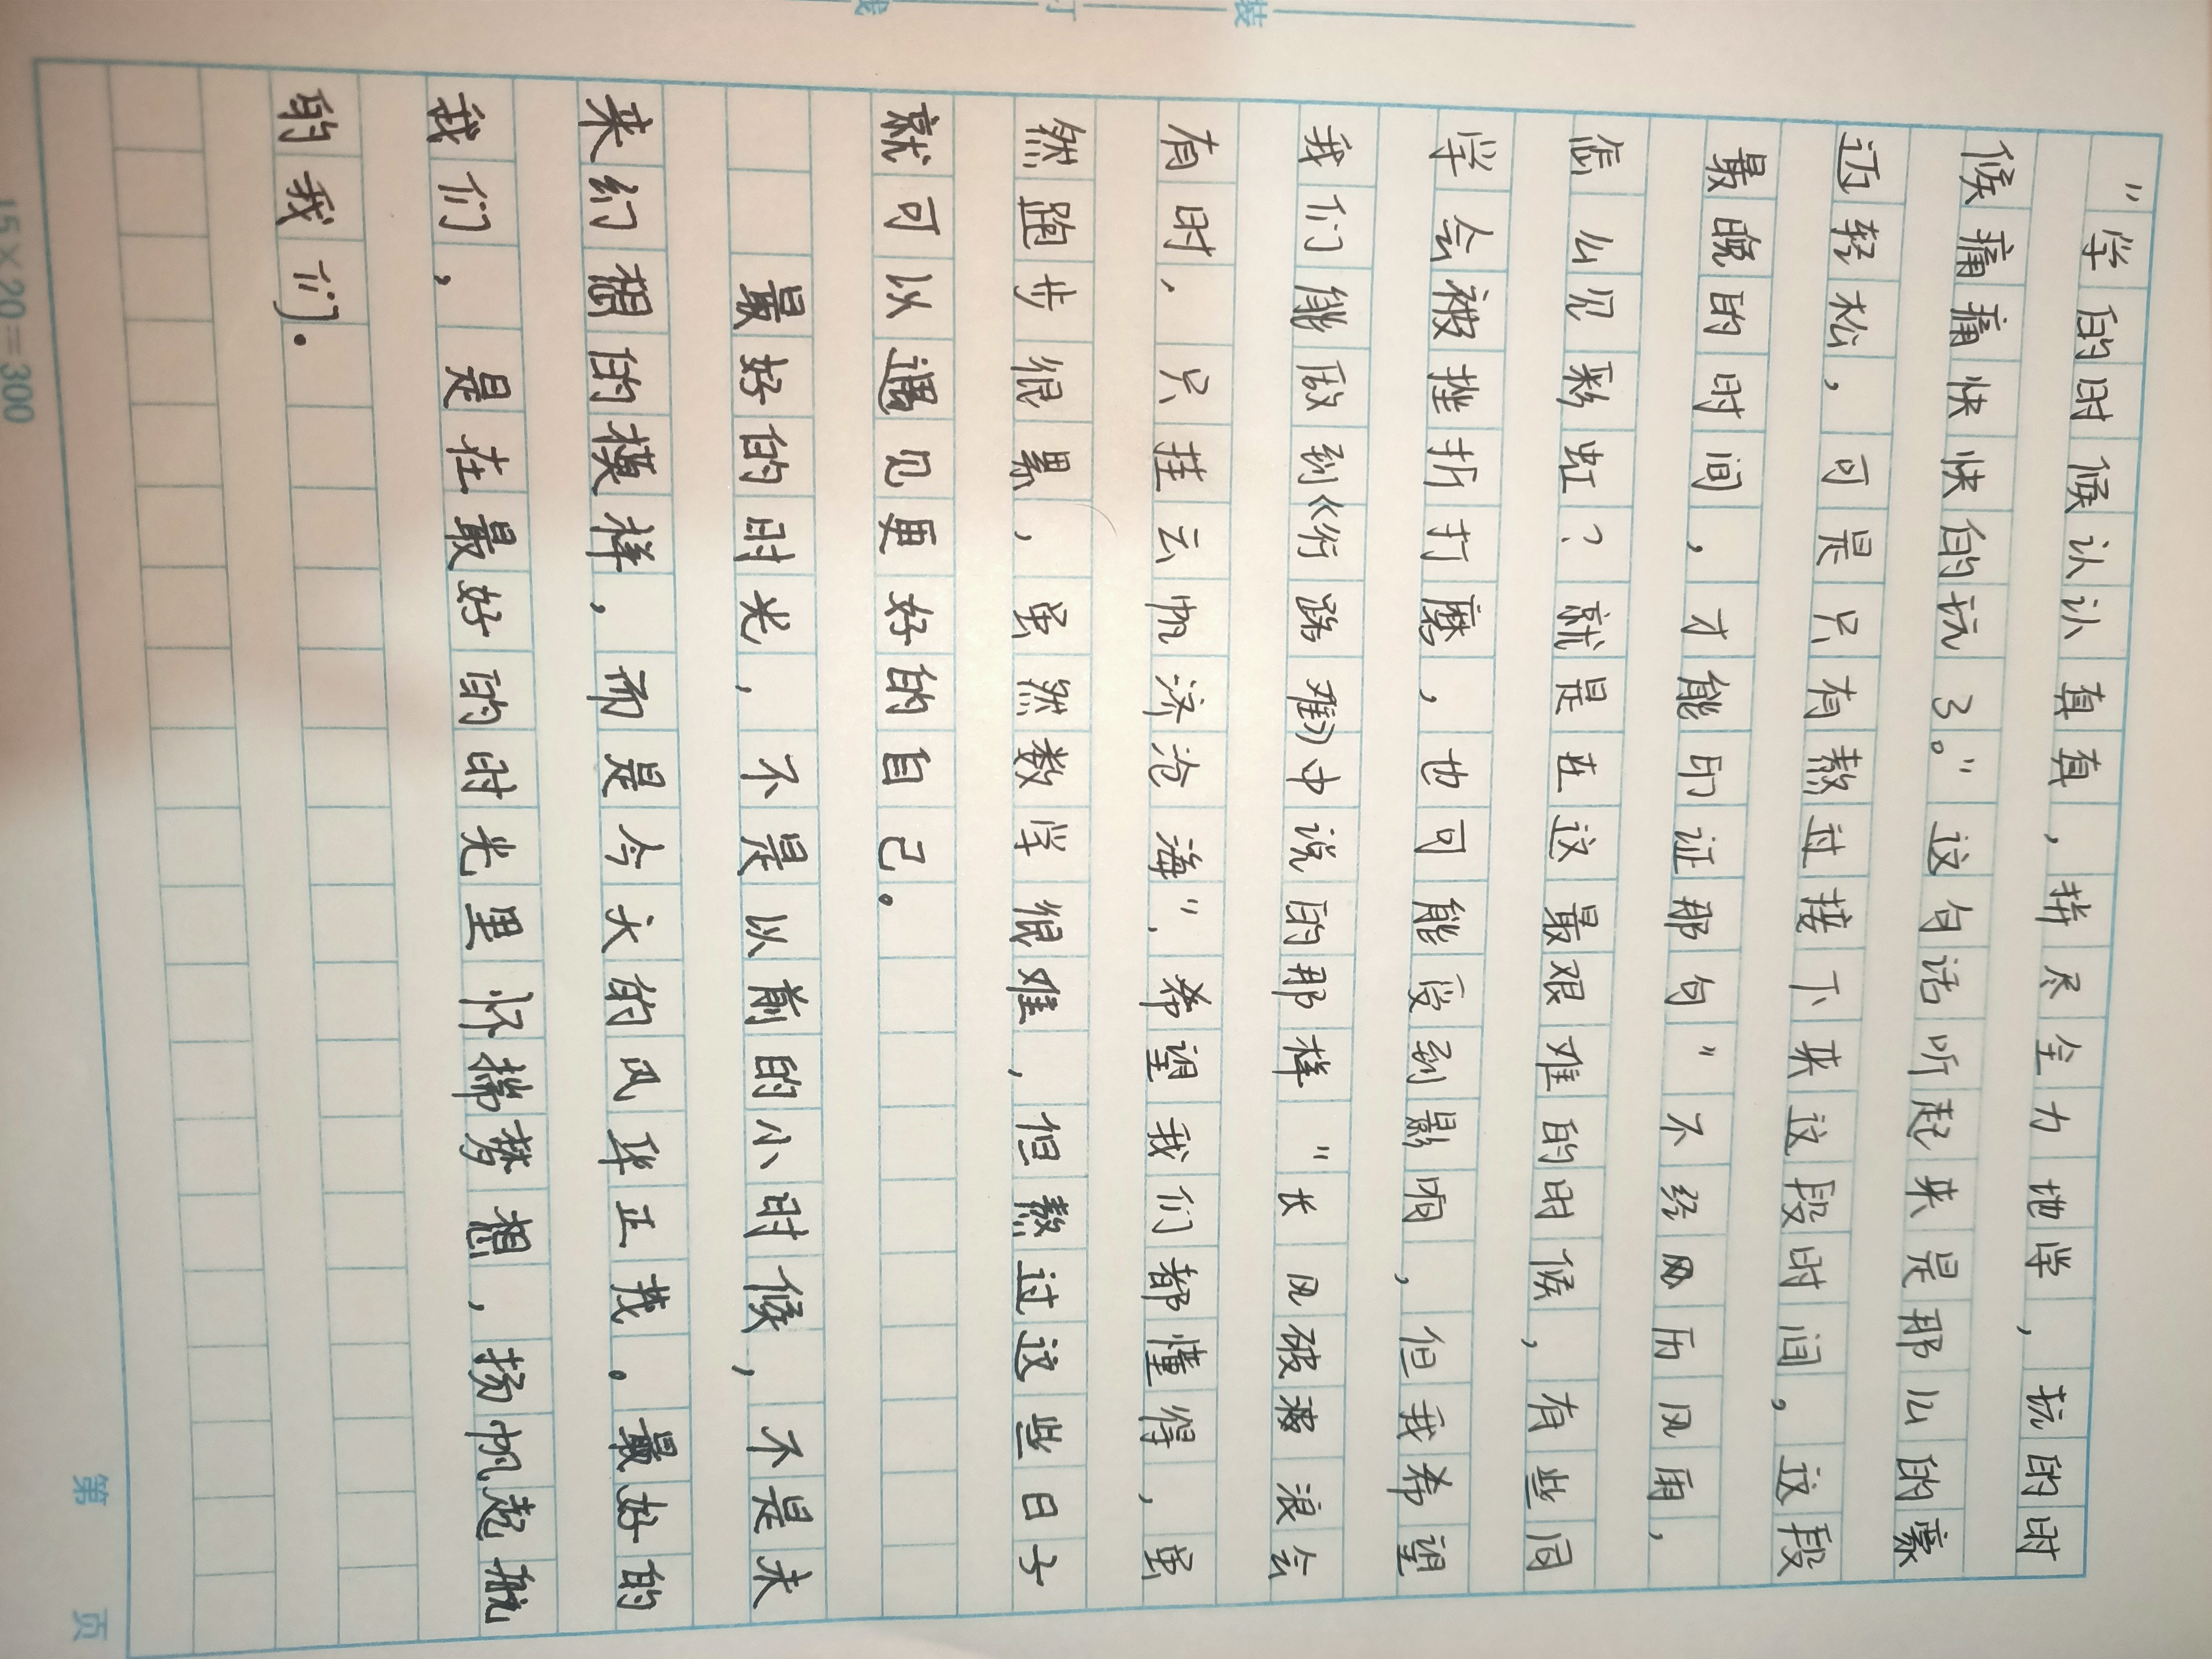 装
订
线
"学的时候认认真真，拼尽全力地学，玩的时
候痛痛快快的玩了。"这句话听起来是那么的豪
迈轻松，可是只有熬过接下来这段时间。这段
最晚的时间，才能印证那句"不经风历风雨，
怎么见彩虹？就是在这最艰难的时候，有些同
学会被挫折打磨，也可能受到影响，但我希望
我们能做到《行路难》中说的那样"长风破浪会
有时，只挂云帆济沧海"，希望我们都懂得，虽
然跑步很累，虽然数学很难，但熬过这些日子
就可以遇见更好的自己。
最好的时光，不是以前的小时候，不是未
来们想的模样，而是今天的风华正茂。最好的
我们，是在最好的时光里怀揣梦想，扬帆起航
的我们。
15×20=300
第 页